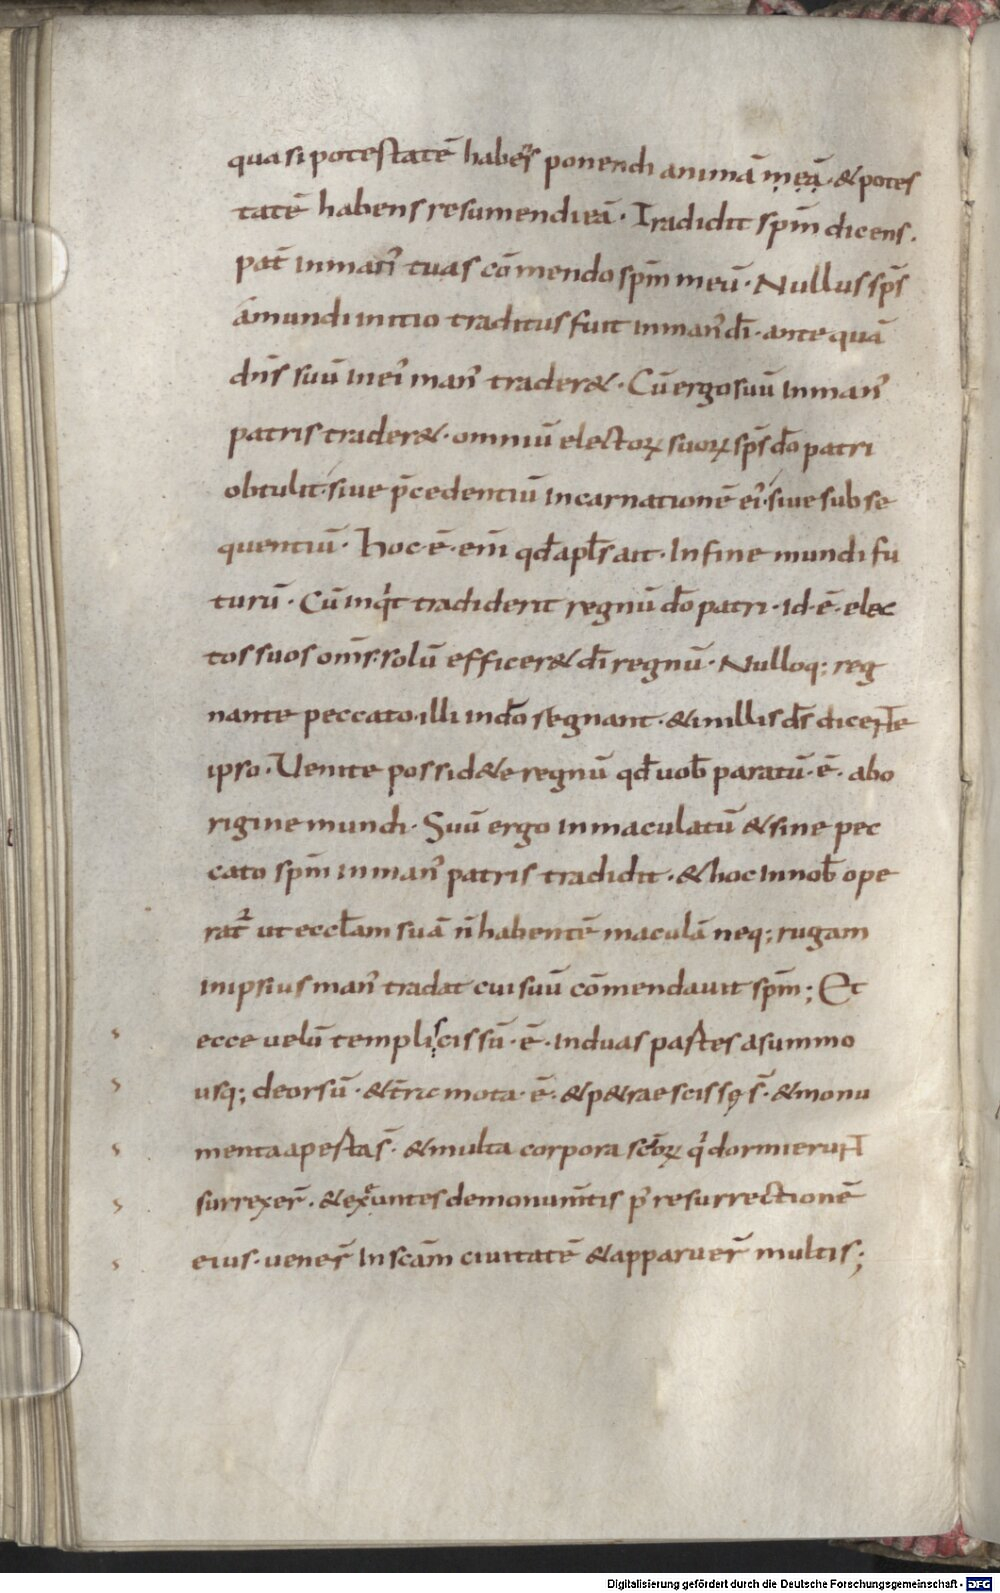 quasi potestatē habe͛s ponendi animā meā · & potes
tatē habens resumendi eā · Tradidit spm̄ dicens ·
pat̄ inman᾽ tuas cōmendo spm̄ meū · Nullus sps̄
amundi initio traditus fuit inman᾽ dī · ante quā
dn̄s suū in ei᾽ man᾽ trader& · Cū ergo suū inman᾽
patris trader& · omniū electoꝝ suoꝝ sps̄ dō patri
obtulit · sive p̄cedentiū incarnationē ei᾽ · sive subse
quentiū · Hoc · ē · enī qđ apl̄s ait · In fine mundi fu
turū · Cū inqͥt tradiderit regnū dō patri · id · ē · elec
tos suos om̄s · solū efficer& dī regnū · Nulloq; reg
nante peccato · illi indō regnant · & inillis ds̄ dicente
ipso · Venite possid&e regnū qđ vob̄ paratū · ē · abo
rigine mundi · Suū ergo inmaculatū & sine pec
cato spm̄ inman᾽ patris tradidit · & hoc innob̄ ope
rat᾽ ut eccl̄am suā n̄ habentē maculā neq; rugam
inipsius man᾽ tradat cui suū cōmendavit spm̄; Et
ecce velū templi scissū · ē · induas partes asummo
usq; deorsū · & t̄ra mota · ē · & p&rae scissę s̄ · & monu
menta aperta s̄ · & multa corpora sc̄oꝝ qͥ dormierunt
surrexer̄ · & exeuntes demonum̄tis p᾽ resurrectionē
eius · vener̄ in scām civitatē & apparuer̄ multis;
Digitalisierung gefördert durch die Deutsche Forschungsgemeinschaft - DFG